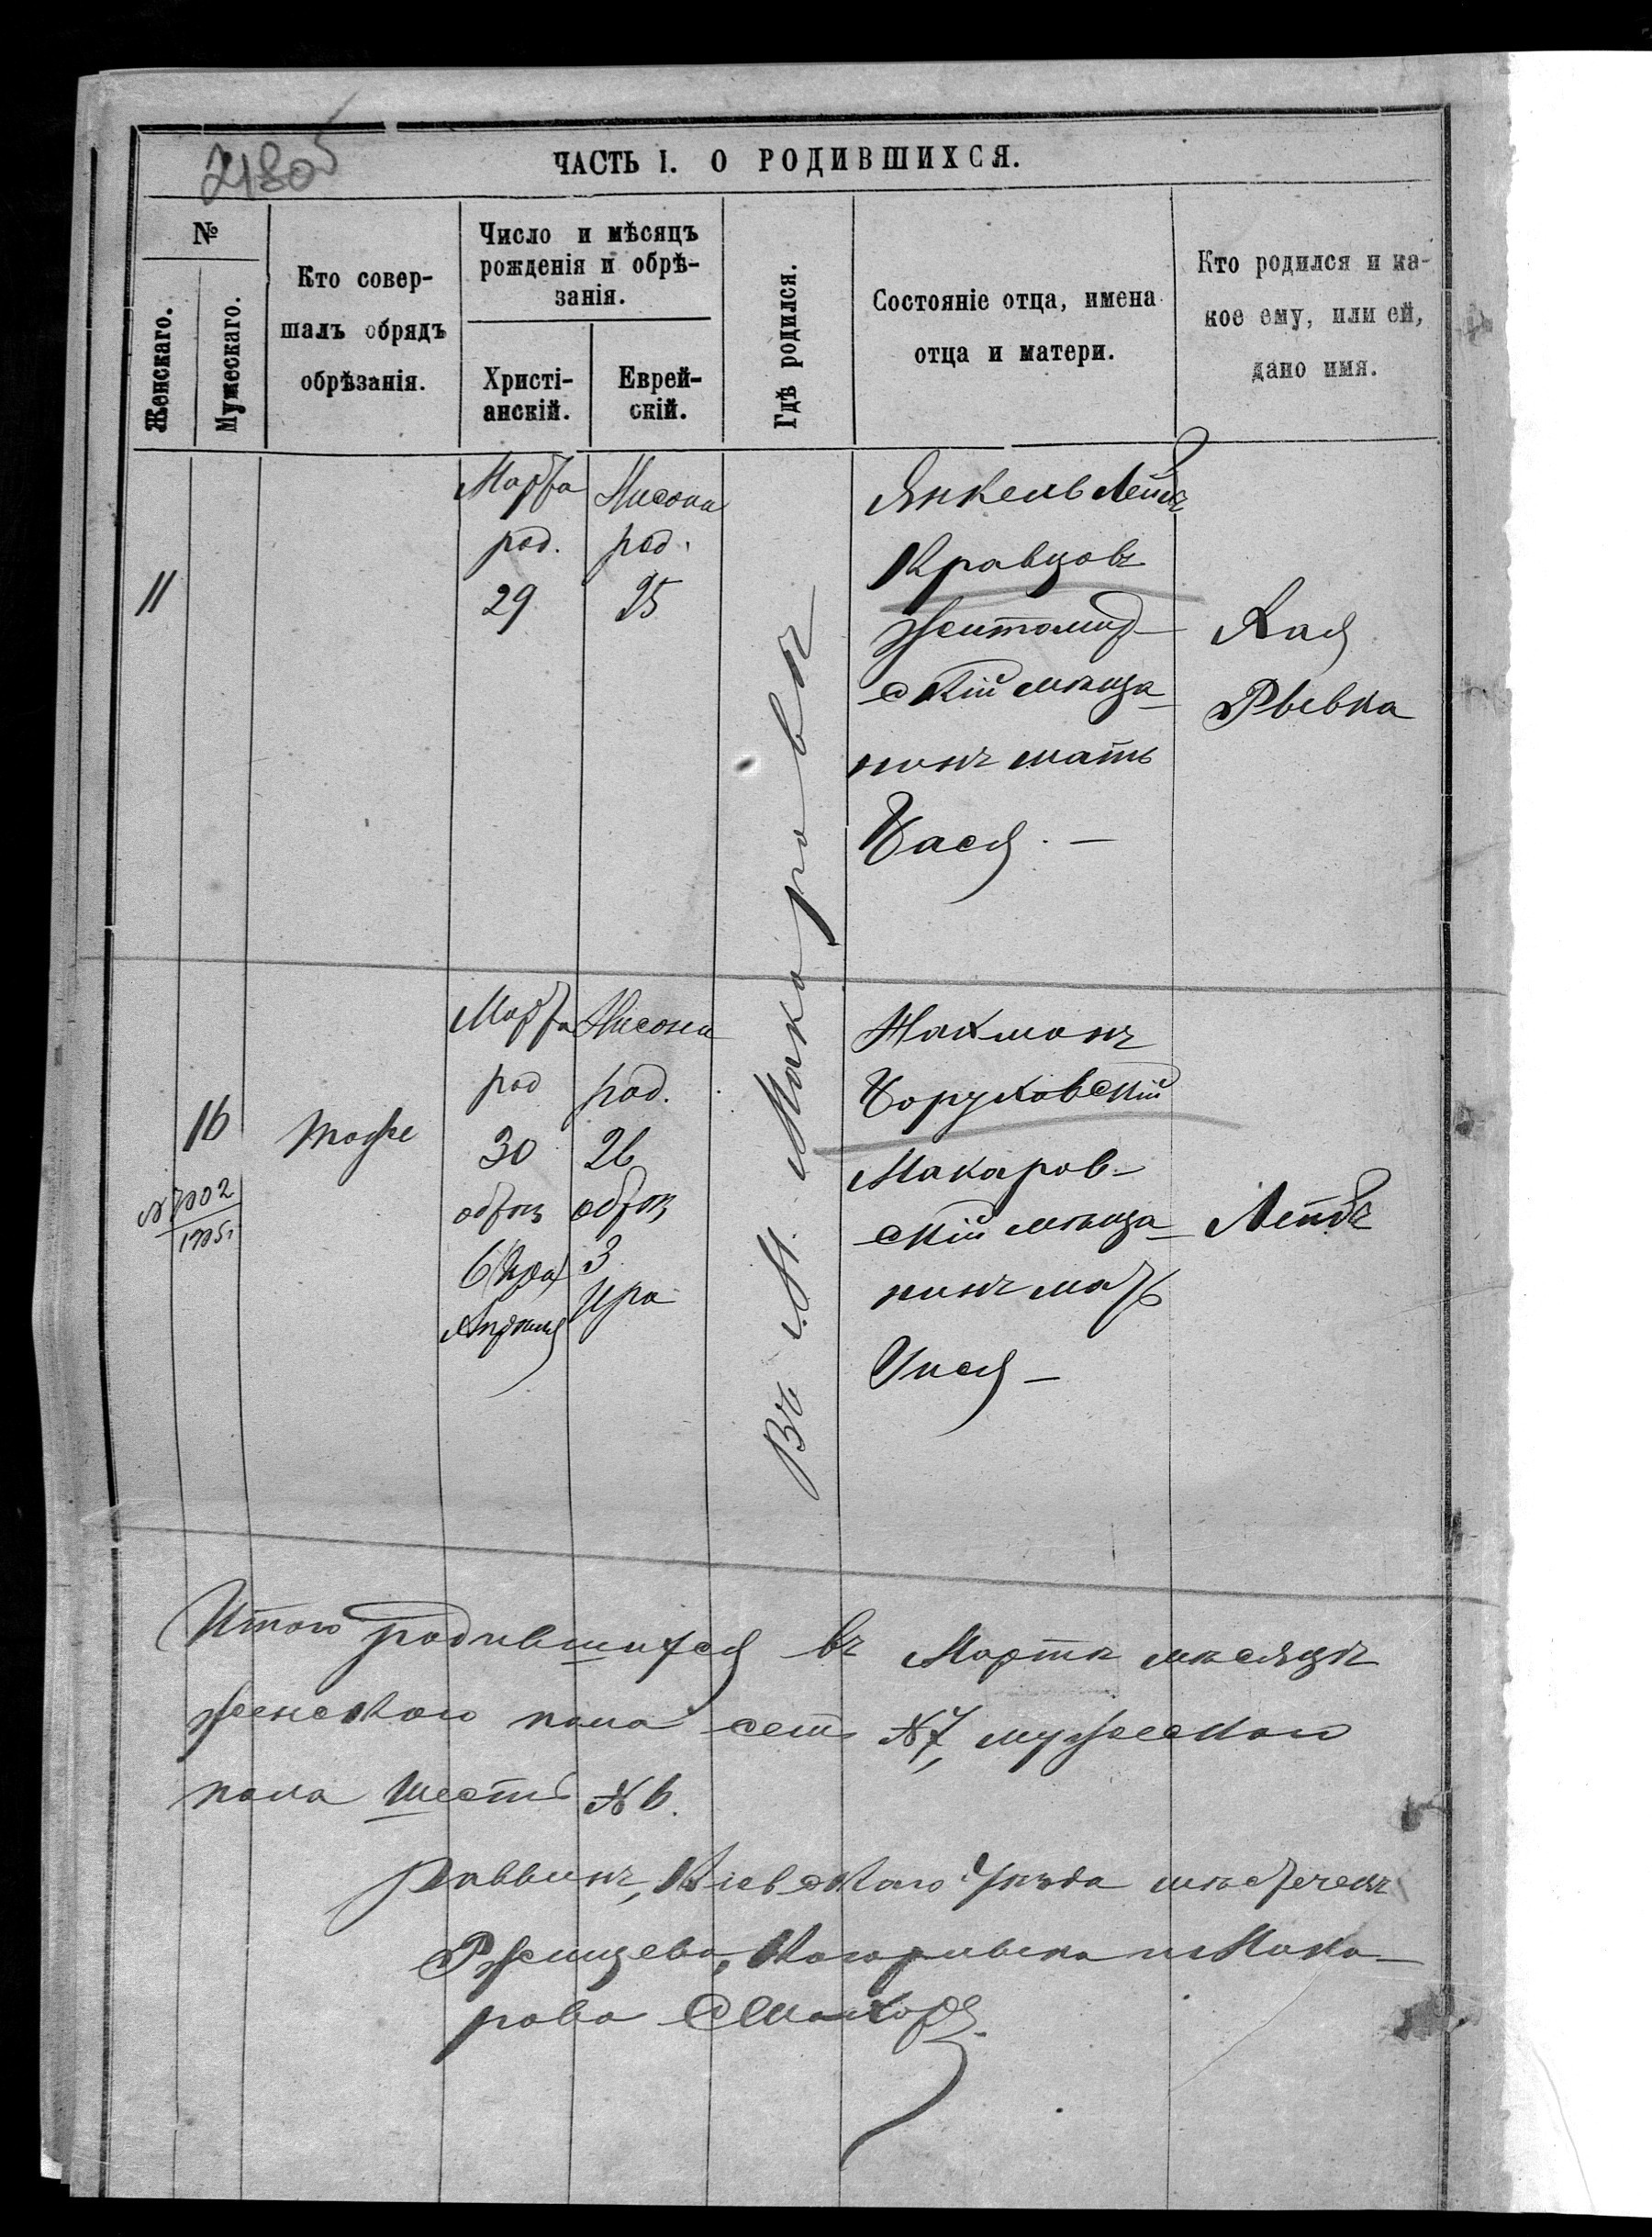 ЧАСТЬ I. О РОДИВШИХСЯ.
№
Женскаго.
Мужескаго.
Кто совер-
шалъ обрядъ
обрѣзанія.
Число и мѣсяцъ
рожденія и обрѣ-
занія.
Христі-
анскій.
Еврей-
скій.
Гдѣ родился.
Состояніе отца, имена
отца и матери.
Кто родился и ка-
кое ему, или ей,
дано имя.
11
Марта
род.
29
Нисона
род.
25
Въ м. Макаровѣ
Янкель Лейбъ
Кравцовъ
Житомир-
скій мѣща-
нинъ мать
Бася. —
Хая
Рывка
16
Марта
род
30
обрѣз
6
Апрѣля
Нисона
род.
26
обрѣз
3
Ира
Нахманъ
Макаров-
скій мѣща-
нинъ мать
Лейбъ
Итого родившихся въ Мартѣ мѣсяцѣ
женскаго пола семь № 7, мужескаго
пола шесть № 6.
Раввинъ, Кіевскаго Уѣзда мѣстечекъ
Ржищева, Кагарлыка и Мака-
рова